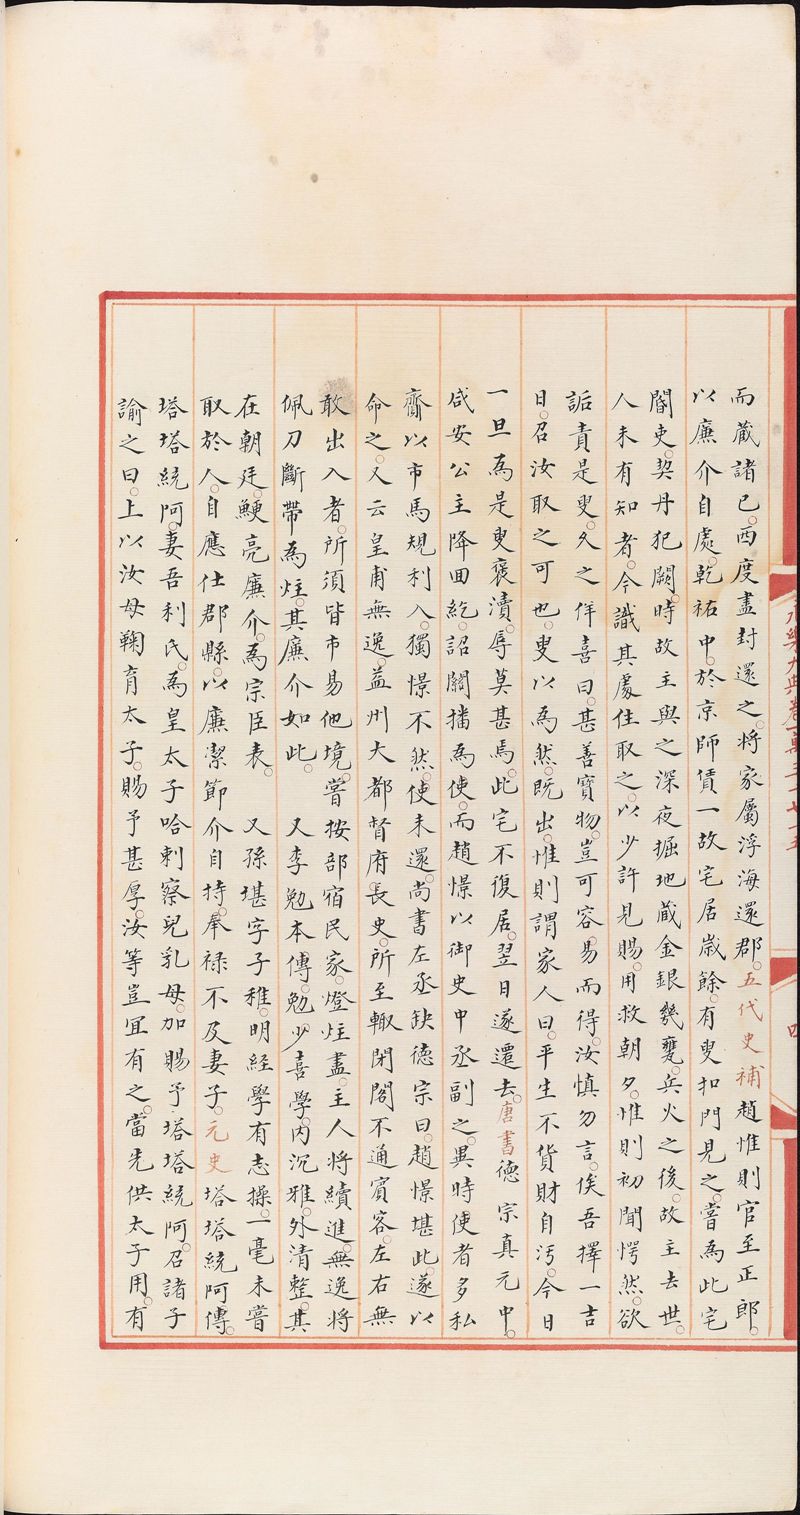 而藏諸已。酉度盡封還之。將家屬浮海還郡。五代史補趙惟則官至正郎。
以廉介自處。乾祐中。於京師賃一故宅居歲餘。有叟扣門見之。嘗為此宅
閽吏。契丹犯闕。時故主與之深夜掘地藏金銀幾甕。兵火之後。故主去世。
人未有知者。今識其處住取之。以少許見賜。用救朝夕。惟則初聞愕然。欲
詬責是叟。久之佯喜曰。甚善寶物。豈可容易而得。汝慎勿言。俟吾擇一吉
日。召汝取之可也。叟以為然。既出。惟則謂家人曰。平生不貨財自汚。今日
一旦為是叟褻瀆。辱莫甚焉。此宅不復居。翌日遂遷去。唐書德宗真元中。
咸安公主降回紇。詔關播為使。而趙憬以御史中丞副之。異時使者多私
齎以市馬規利入。獨憬不然。使未還。尚書左丞缺德宗曰。趙憬堪此。遂以
命之。又云皇甫無逸。益州大都督府長史。所至輒閉閤不通賓客。左右無
敢出入者。所須皆市易他境。嘗按部宿民家。燈炷盡。主人將續進。無逸將
佩刀斷帶為炷。其廉介如此。 又李勉本傳。勉少喜學。內沉雅。外清整。其
在朝廷。鯁亮廉介。為宗臣表。 又孫堪字子稚。明經學有志操。一毫未嘗
取於人。自應仕郡縣。以廉潔節介自持。奉祿不及妻子。元史塔塔統阿傳。
塔塔統阿。妻吾利氏。為皇太子哈剌察兒乳母。加賜予塔塔統阿。召諸子
諭之曰。上以汝母鞠育太子。賜予甚厚。汝等豈冝有之。當先供太子用。有